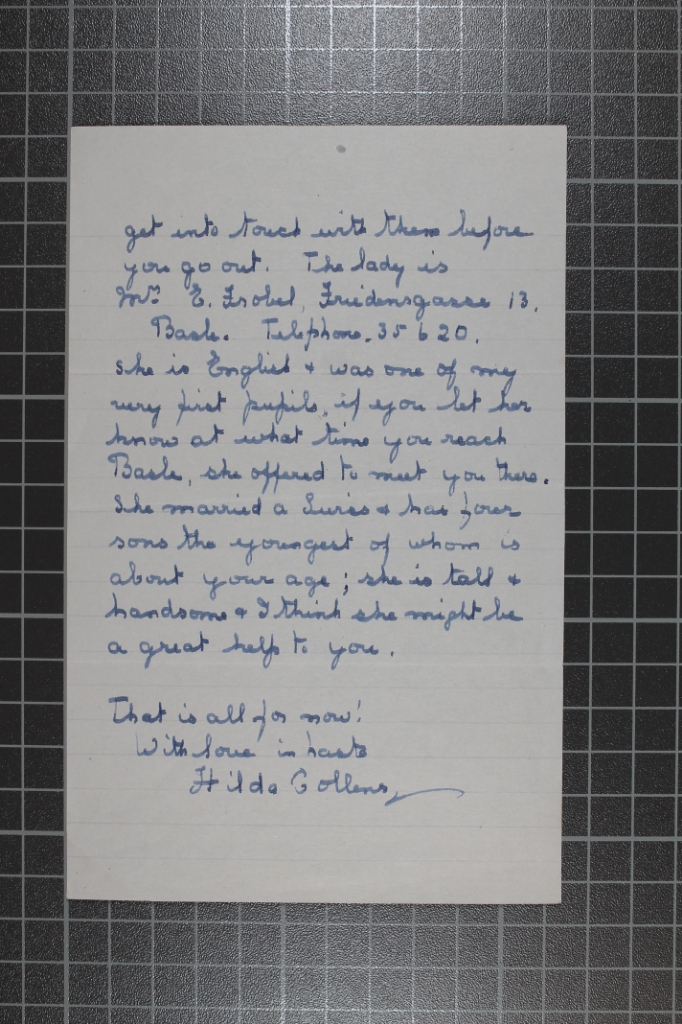 get into touch with them before
you go out. The lady is
Mrs E. Frobel, Friedensgasse 13,
Basle. Telephone. 35 6 20.
She is English & was one of my
very first pupils, if you let her
know at what time you reach
Basle, she offered to meet you there.
She married a Swiss & has four
sons the youngest of whom is
about your age; she is tall &
handsome & I think she might be
a great help to you.
That is all for now!
With love in haste
Hilda Collens